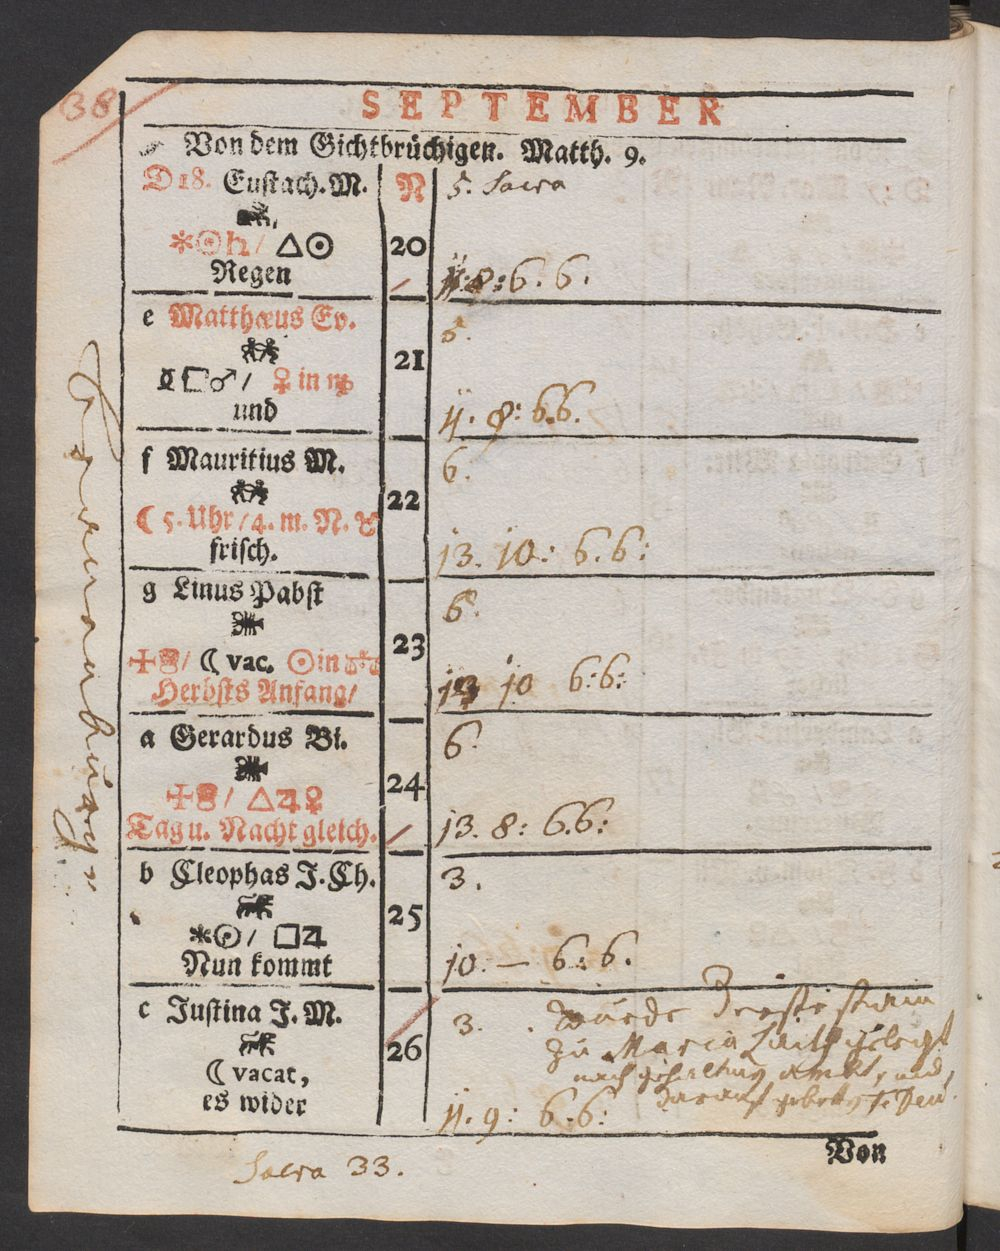 38
SEPTEMBER
Von dem Gichtbrüchigen. Matth. 9.
D 18. Eustach. M. N 5. Sacra
✶☉♄/ △☉ 20
Regen 11: 8: 6. 6.
e Matthæus Ev. 5.
21
☿□♂/ ♀ in ♍
und 11. 8: 6.6.
f Mauritius M. 6.
22
☾ 5. Uhr/4. m. N. ♉
frisch. 13. 10: 6.6:
g Linus Pabst 6.
23
☾ vac. ☉ in ♎
Herbsts Anfang/ 13 10 6:6:
a Gerardus Bi. 6.
24
△♃♀
Tag u. Nacht gleich. 13. 8: 6.6:
b Cleophas J. Ch. 3.
25
✶☉/ □♃
Nun kommt 10. — 6: 6.
c Justina J. M. 3. wurde
26 zu Maria
☾ vacat, nach
es wider 11. 9: 6.6:
Von
Sacra 33.